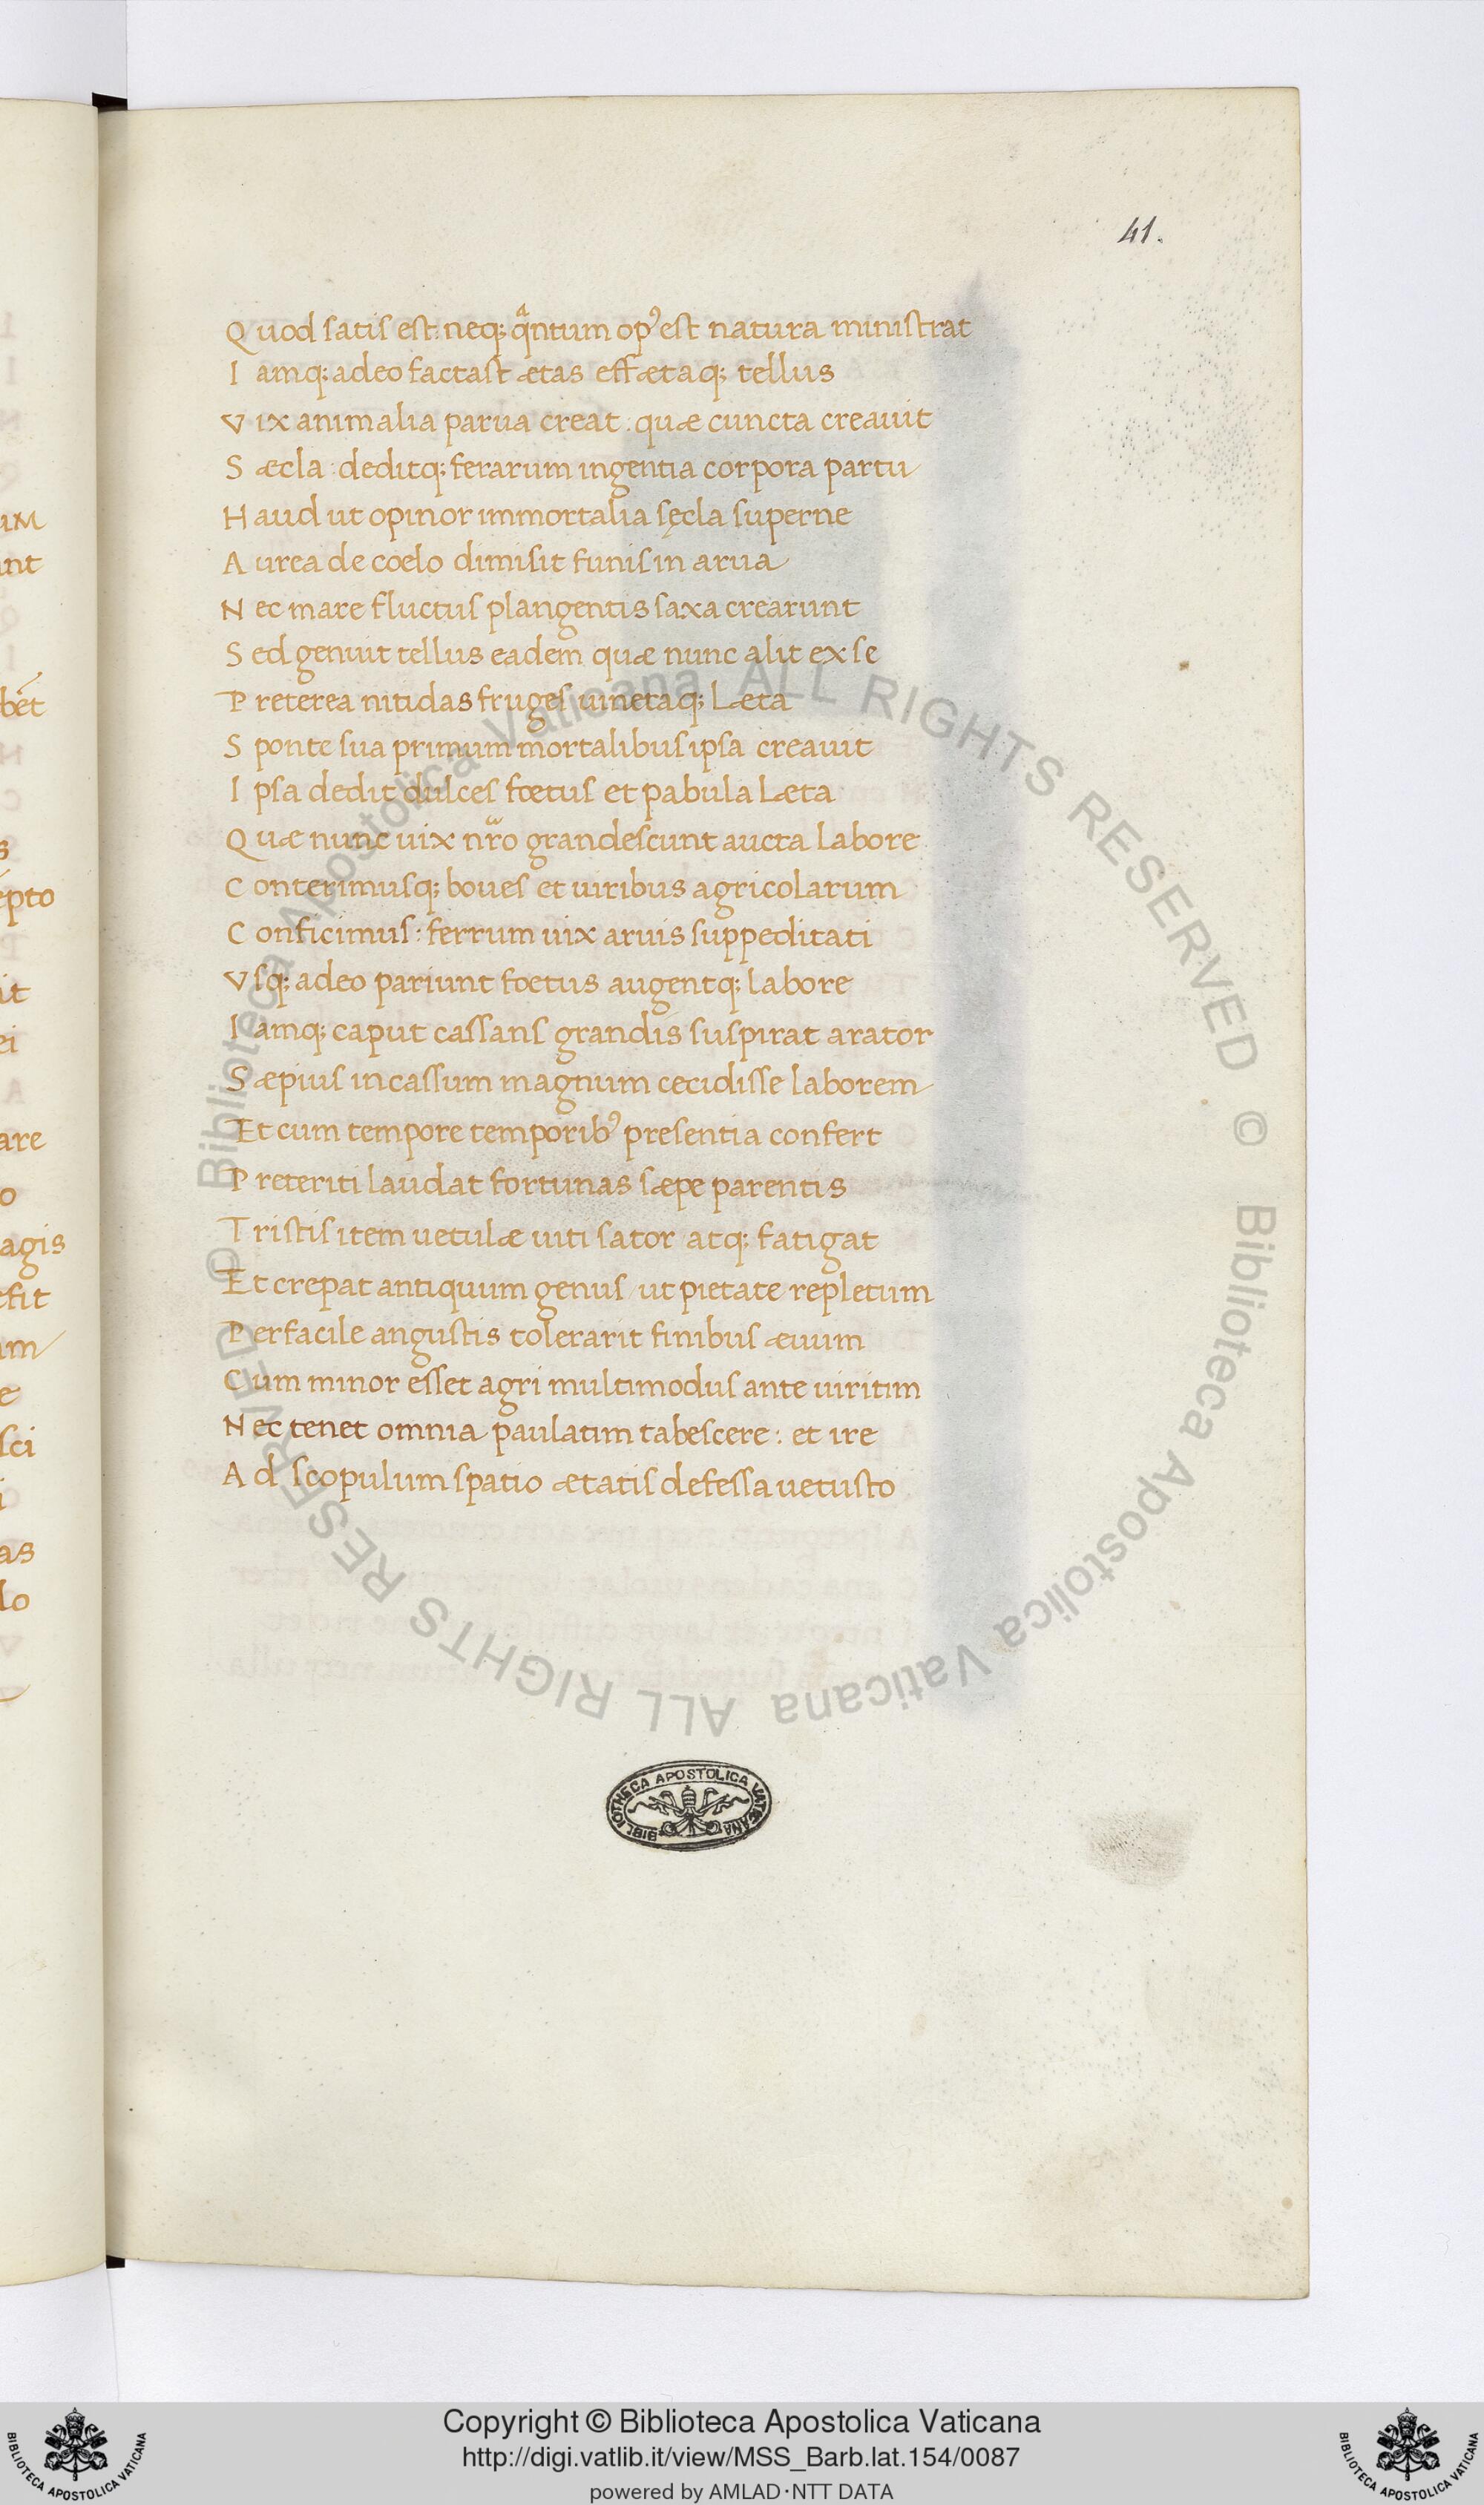 41.
Quod satis est: neq; qͣntum op᾽ est natura ministrat
Iamq; adeo factast ætas effætaq; tellus
Vix animalia parua creat: quæ cuncta creauit
Sæcla: deditq; ferarum ingentia corpora partu
Haud ut opinor immortalia sęcla superne
Aurea de coelo dimisit funis in arua
Nec mare fluctus plangentis saxa crearunt
Sed genuit tellus eadem quæ nunc alit ex se
Preterea nitidas fruges uinetaq; Læta
Sponte sua primum mortalibus ipsa creauit
Ipsa dedit dulces fœtus et pabula Læta
Quæ nunc uix nr̃o grandescunt aucta Labore
Conterimusq; boues et uiribus agricolarum
Conficimus: ferrum uix aruis suppeditati
Vsq; adeo pariunt foetus augentq; labore
Iamq; caput cassans grandis suspirat arator
Sæpius incassum magnum cecidisse laborem
Et cum tempore temporib᾽ presentia confert
Preteriti laudat fortunas sæpe parentis
Tristis item uetulæ uiti sator atq; fatigat
Et crepat antiquum genus ut pietate repletum
Perfacile angustis tolerarit finibus æuum
Cum minor esset agri multimodus ante uiritim
Nec tenet omnia paulatim tabescere: et ire
Ad scopulum spatio ætatis defessa uetusto
BIBLIOTHECA APOSTOLICA VATICANA
© Biblioteca Apostolica Vaticana ALL RIGHTS RESERVED
© Biblioteca Apostolica Vaticana ALL RIGHTS RESERVED
Copyright © Biblioteca Apostolica Vaticana
http://digi.vatlib.it/view/MSS_Barb.lat.154/0087
powered by AMLAD·NTT DATA
BIBLIOTECA APOSTOLICA VATICANA
BIBLIOTECA APOSTOLICA VATICANA